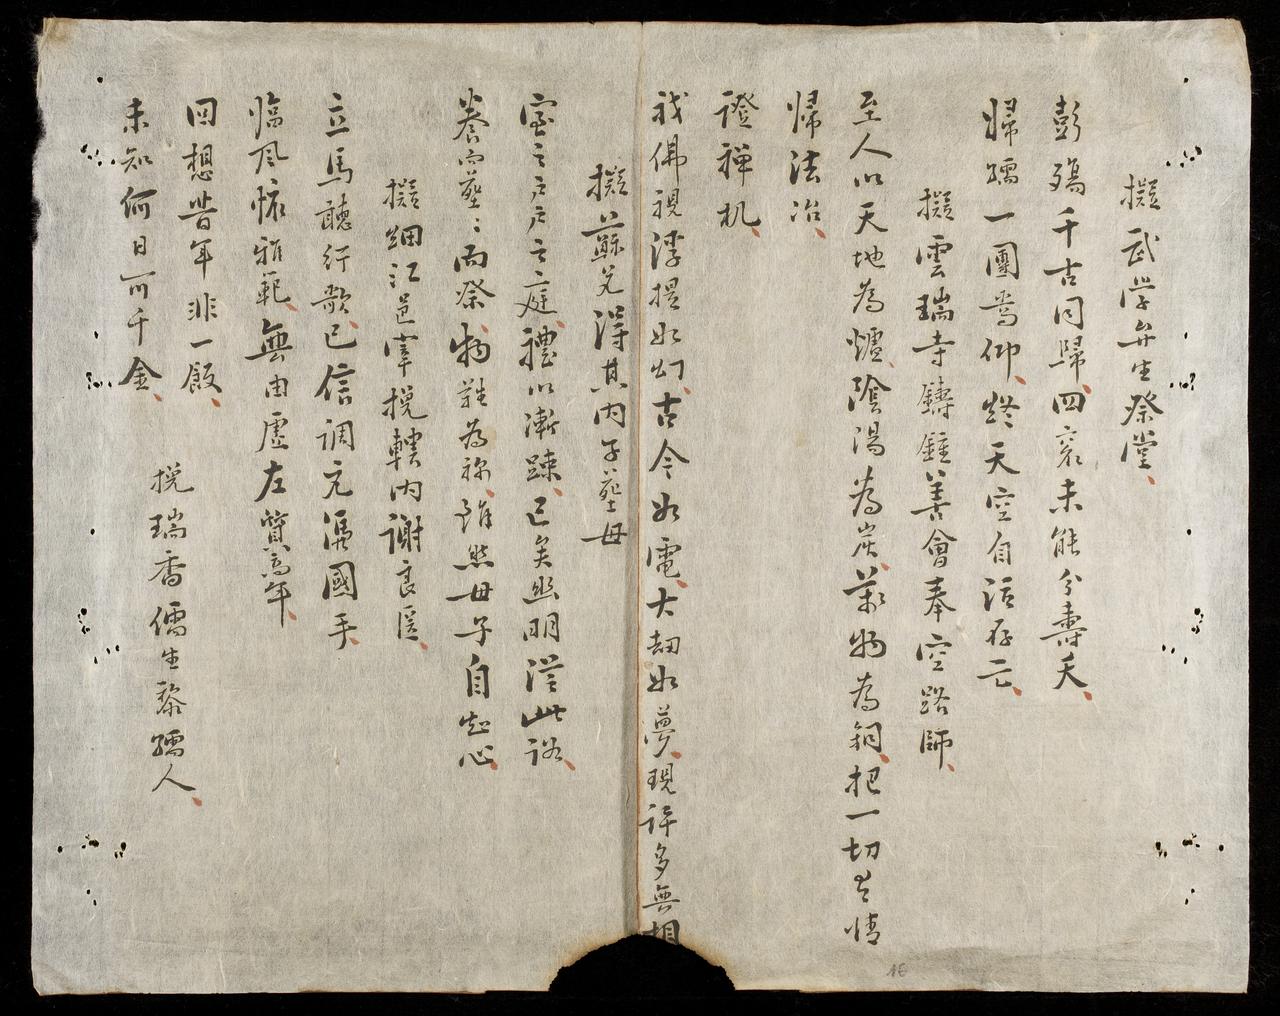 擬武学弁生祭堂
彭殤千古同歸四裒未能分壽夭
歸孺一團䓊仰終天空自活存亡
擬雲瑞寺鑄鍾善會奉空路師
至人以天地為爐陰湯為炭萬物為銅把一切世情
帰法冶
證禅机
我佛視浮提如幻古今如電大劫如夢現許多無相
擬蘇兄得其内子塟母
室之戸戸之庭禮以漸踈已矣幽明從此
養而塟塟而祭物難為称雖然母子自知心
擬細江邑宰挽轄内謝良医
立馬聽行歌已信調元濡國手
臨风懐雅範無由虚左貭高年
回想昔年非一飯
未知何日所千金
挽瑞香儒生黎孺人